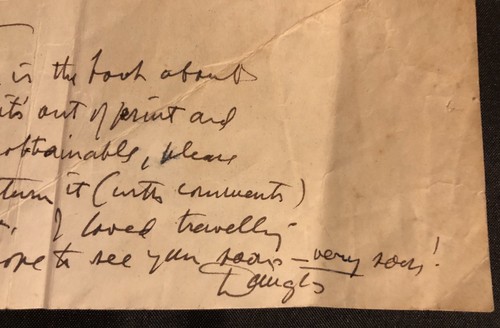 is the book about
it's out of print and
obtainable, please
turn it (with comments)
I loved travelling
ope to see you soon – very soon!